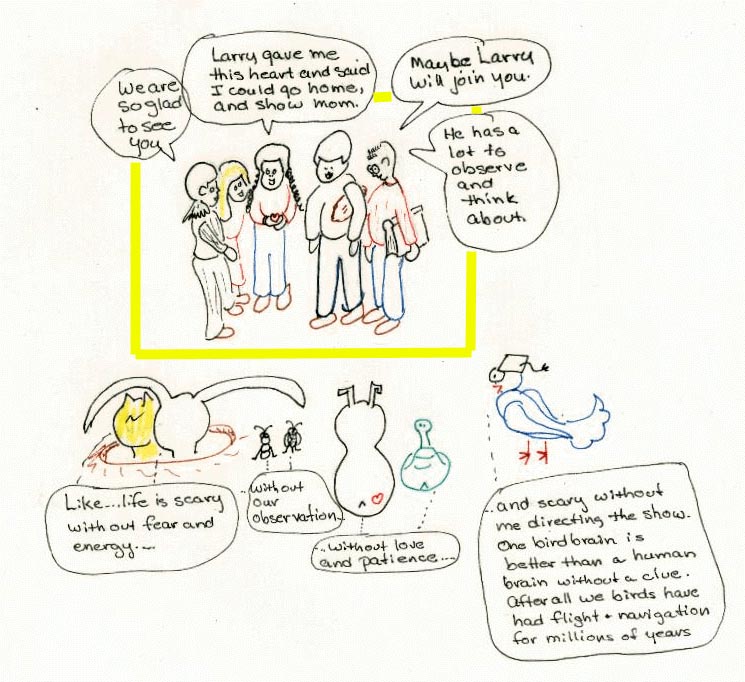 We are
so glad
to see
you
Larry gave me
this heart and said
I could go home,
and show mom.
Maybe Larry
will join you.
He has a
lot to
observe
and
think
about.
Like....life is scary
without fear and
energy....
..without
our
observation...
...without love
and patience....
...and scary without
me directing the show.
One birdbrain is
better than a human
brain without a clue.
After all we birds have
had flight + navigation
for millions of years